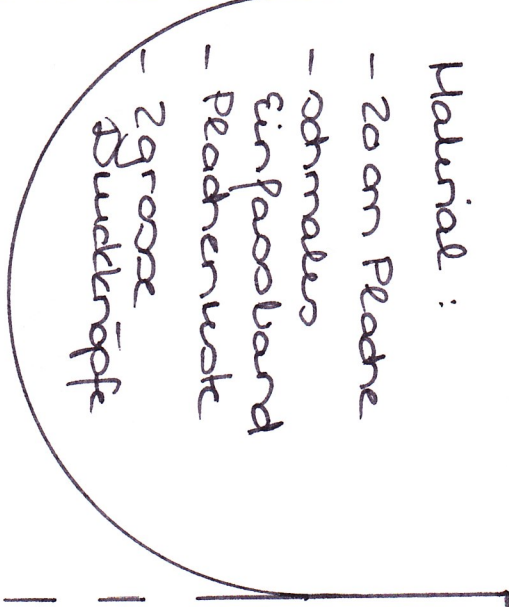 Material:
- 20 cm Plache
- schmales
Einfassband
- Plachenreste
- 2 grosse
Druckknöpfe